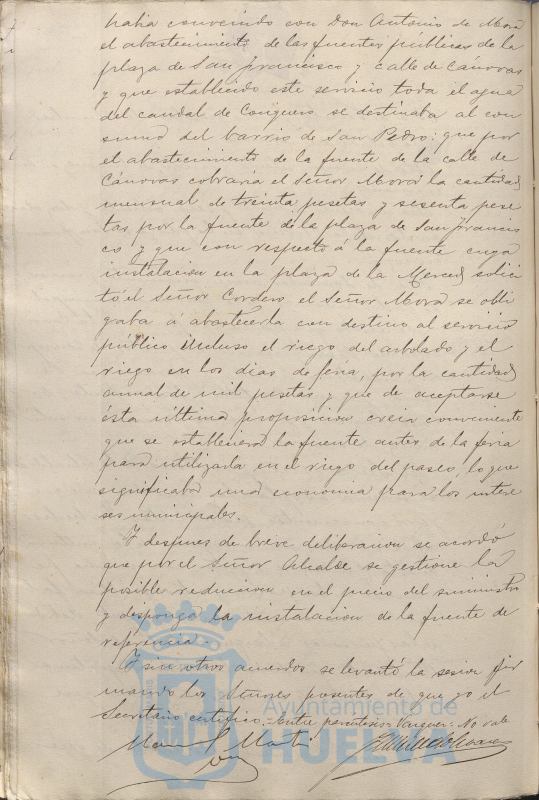 había convenido con Don Antonio de Mora
el abastecimiento de las fuentes públicas de la
plaza de San Francisco y calle de Cánovas
y que establecido este servicio toda el agua
del caudal de Conquero se destinaba al con
sumo del barrio de San Pedro: que por
el abastecimiento de la fuente de la calle de
Cánovas cobraría el Señor Mora la cantidad
mensual de treinta pesetas y sesenta pese
tas por la fuente de la plaza de San Francis
co y que con respecto á la fuente cuya
instalacion en la plaza de la Merced solici
tó el Señor Cordero el Señor Mora se obli
gaba á abastecerla con destino al servicio
público incluso el riego del arbolado y el
riego en los dias de feria, por la cantidad
annual de mil pesetas y que de aceptarse
ésta última proposicion creia conveniente
que se estableciera la fuente antes de la feria
para utilizarla en el riego del paseo, lo que
significaba una economia para los intere
ses municipales.
Y despues de breve deliberacion se acordó
que por el Señor Alcalde se gestione la
posible reduccion en el precio del suministro
y disponga la instalacion de la fuente de
referencia.
Y sin otros acuerdos se levantó la sesion fir
mando los Señores presentes de que yo el
Secretario certifico.=Entre parentesis= Vazquez= No vale
Ayuntamiento de
HUELVA